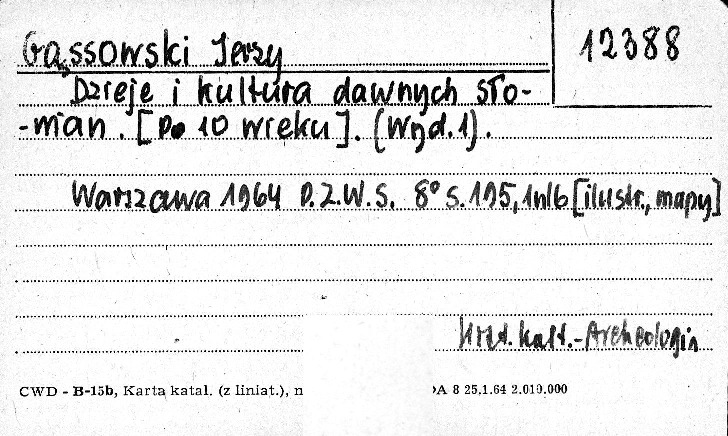 Gąssowski Jerzy 12388
Dzieje i kultura dawnych Sło-
-wian. [Do 10 wieku]. (Wyd. 1).
Warszawa 1964 P.Z.W.S. 8° s. 195, 1nlb [ilustr., mapy]
Hist. kult. - Archeologia
CWD - B-15b, Karta katal. (z liniat.), n A 8 25.1.64 2.010.000